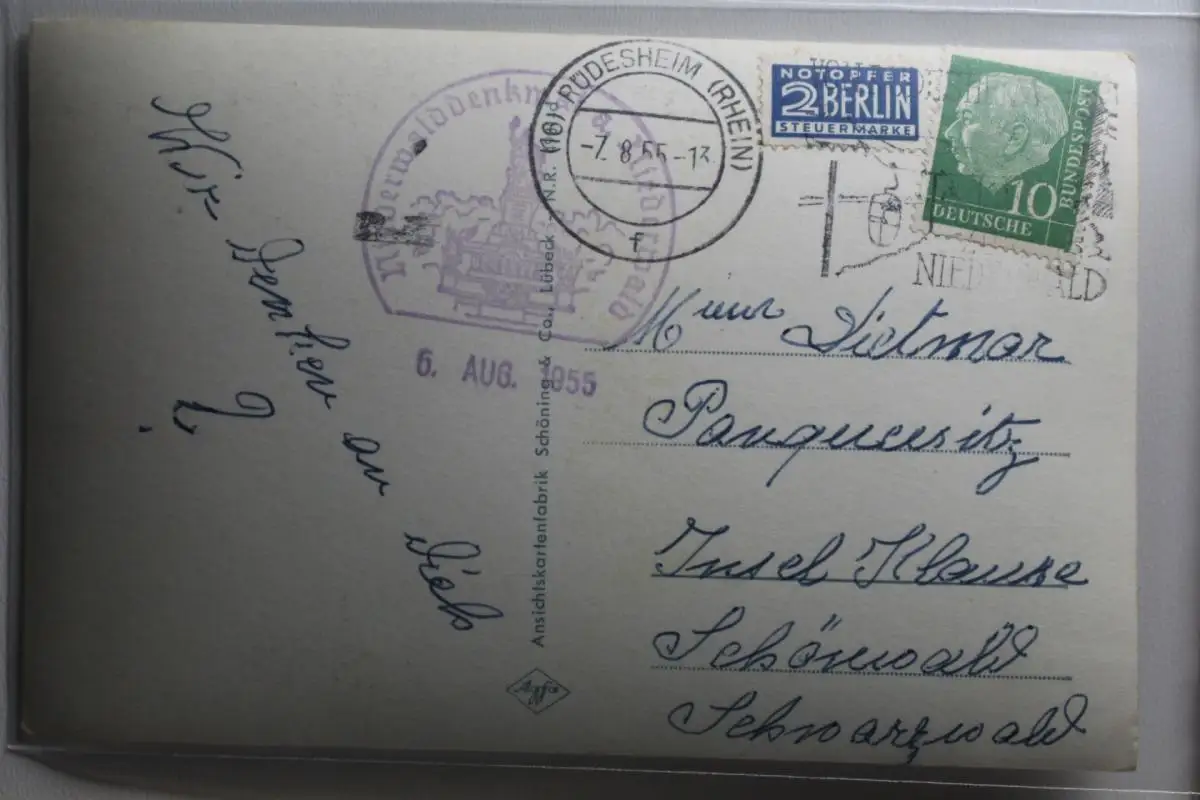 Wir denken an Dich
!
Niederwalddenkmal a. Niederwald
6. AUG. 1955
(16) RÜDESHEIM (RHEIN)
-7.8.55-13
f
NOTOPFER
2 BERLIN
STEUERMARKE
10
DEUTSCHE
BUNDESPOST
NIEDERWALD
Ansichtskartenfabrik Schöning & Co., Lübeck N.R.
Agfa
Dietmar
Insel Klause
Schönwald
Schwarzwald